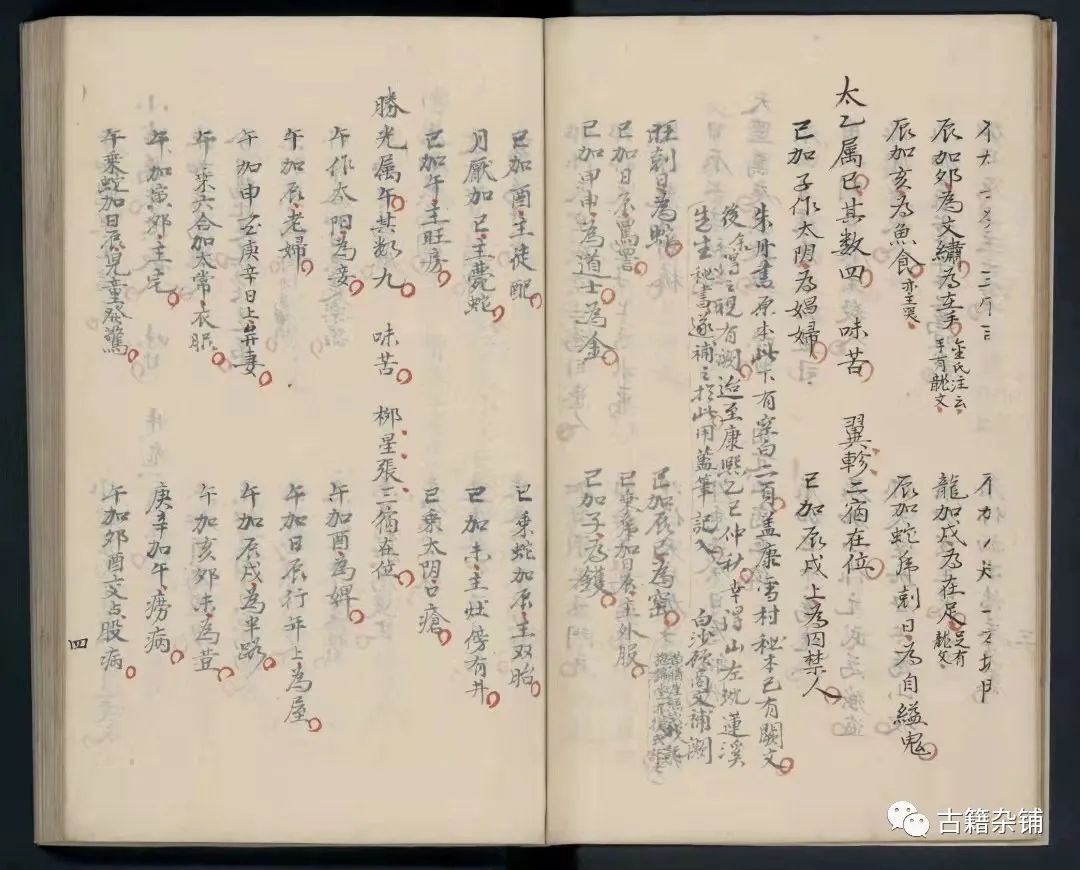 辰加卯為文繡為左手 金氏注云手有龍文 龍加戌為在尾 足有龍文
辰加亥為魚食 亦主哭 辰加蛇虎剋日為自縊鬼
太乙属巳其数四 味苦 翼軫二宿在位
巳加子作太阴為娼婦 巳加辰戌上為囚禁人
朱丹書原本此下有空白二頁盖康雪村秘本已有闕文
後余得之現有闕迨至康熙乙巳仲秋幸得山左 蓮溪
生生秘書遂補之於此用藍筆記入 白沙 補闕
旺剋日為蛇 巳加辰巳為窑
巳加日辰罵詈 巳乘 加日辰主外服
巳加甲申為道士為金 巳加子為鑊
巳加酉主徒配 巳乘蛇加辰主双胎
月厭加巳主甍蛇 巳加未主灶傍有井
巳加午主旺房 巳乘太阴口瘡
勝光属午其数九 味苦 柳星張三宿在位
午作太阳為妾 午加酉為婢
午加辰老婦 午加日辰行年上為屋
午加申 庚辛日上弃妻 午加辰戌為車路
午乘六合加太常衣服 午加亥卯未為荁
午加寅卯主宅 庚辛加午痨病
午乘蛇加日辰兒童發驚 午加卯酉交占股病
四
古籍杂铺